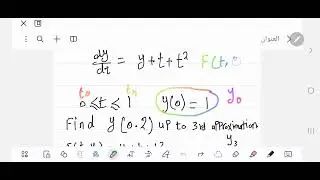 العنوان
dy/dt = y + t + t² F(t,
t₀ tₙ
0 ≤ t ≤ 1 y(0) = 1 y₀
Find y(0.2) up to 3rd approximation
y₃